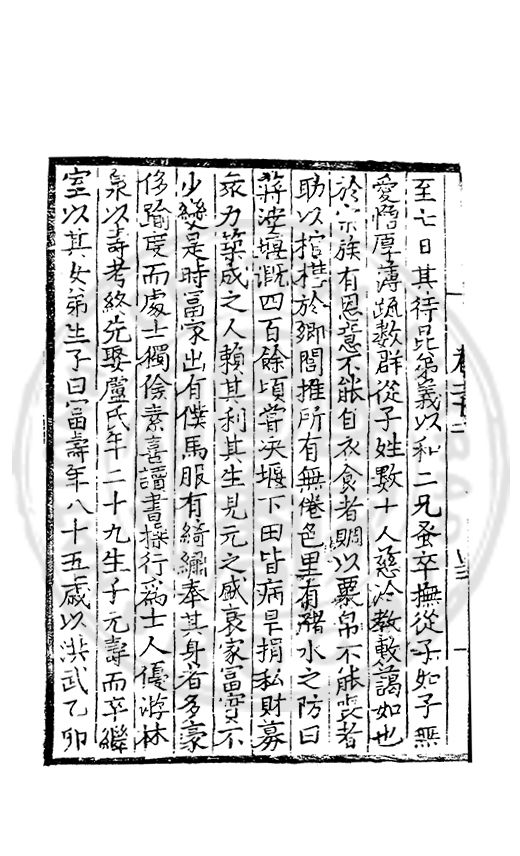 至七日其待昆弟義以和二兄蚤卒撫從子如子無
愛憎厚薄疏數群從子姓數十人懇洽敦敕藹如也
於宗族有恩意不能自衣食者賙以粟帛不能喪者
助以棺槥於鄉閭推所有無倦色里有豬水之防曰
蔣婆堰溉四百餘頃嘗決堰下田皆病旱捐私財募
衆力築成之人賴其利其生見元之盛衰家富實不
少變是時富家出有僕馬服有綺繡奉其身者多豪
侈踰度而處士獨儉素喜讀書操行爲士人優游林
泉以壽考終先娶盧氏年二十九生子元壽而卒繼
室以其女弟生子曰富壽年八十五歲以洪武乙卯